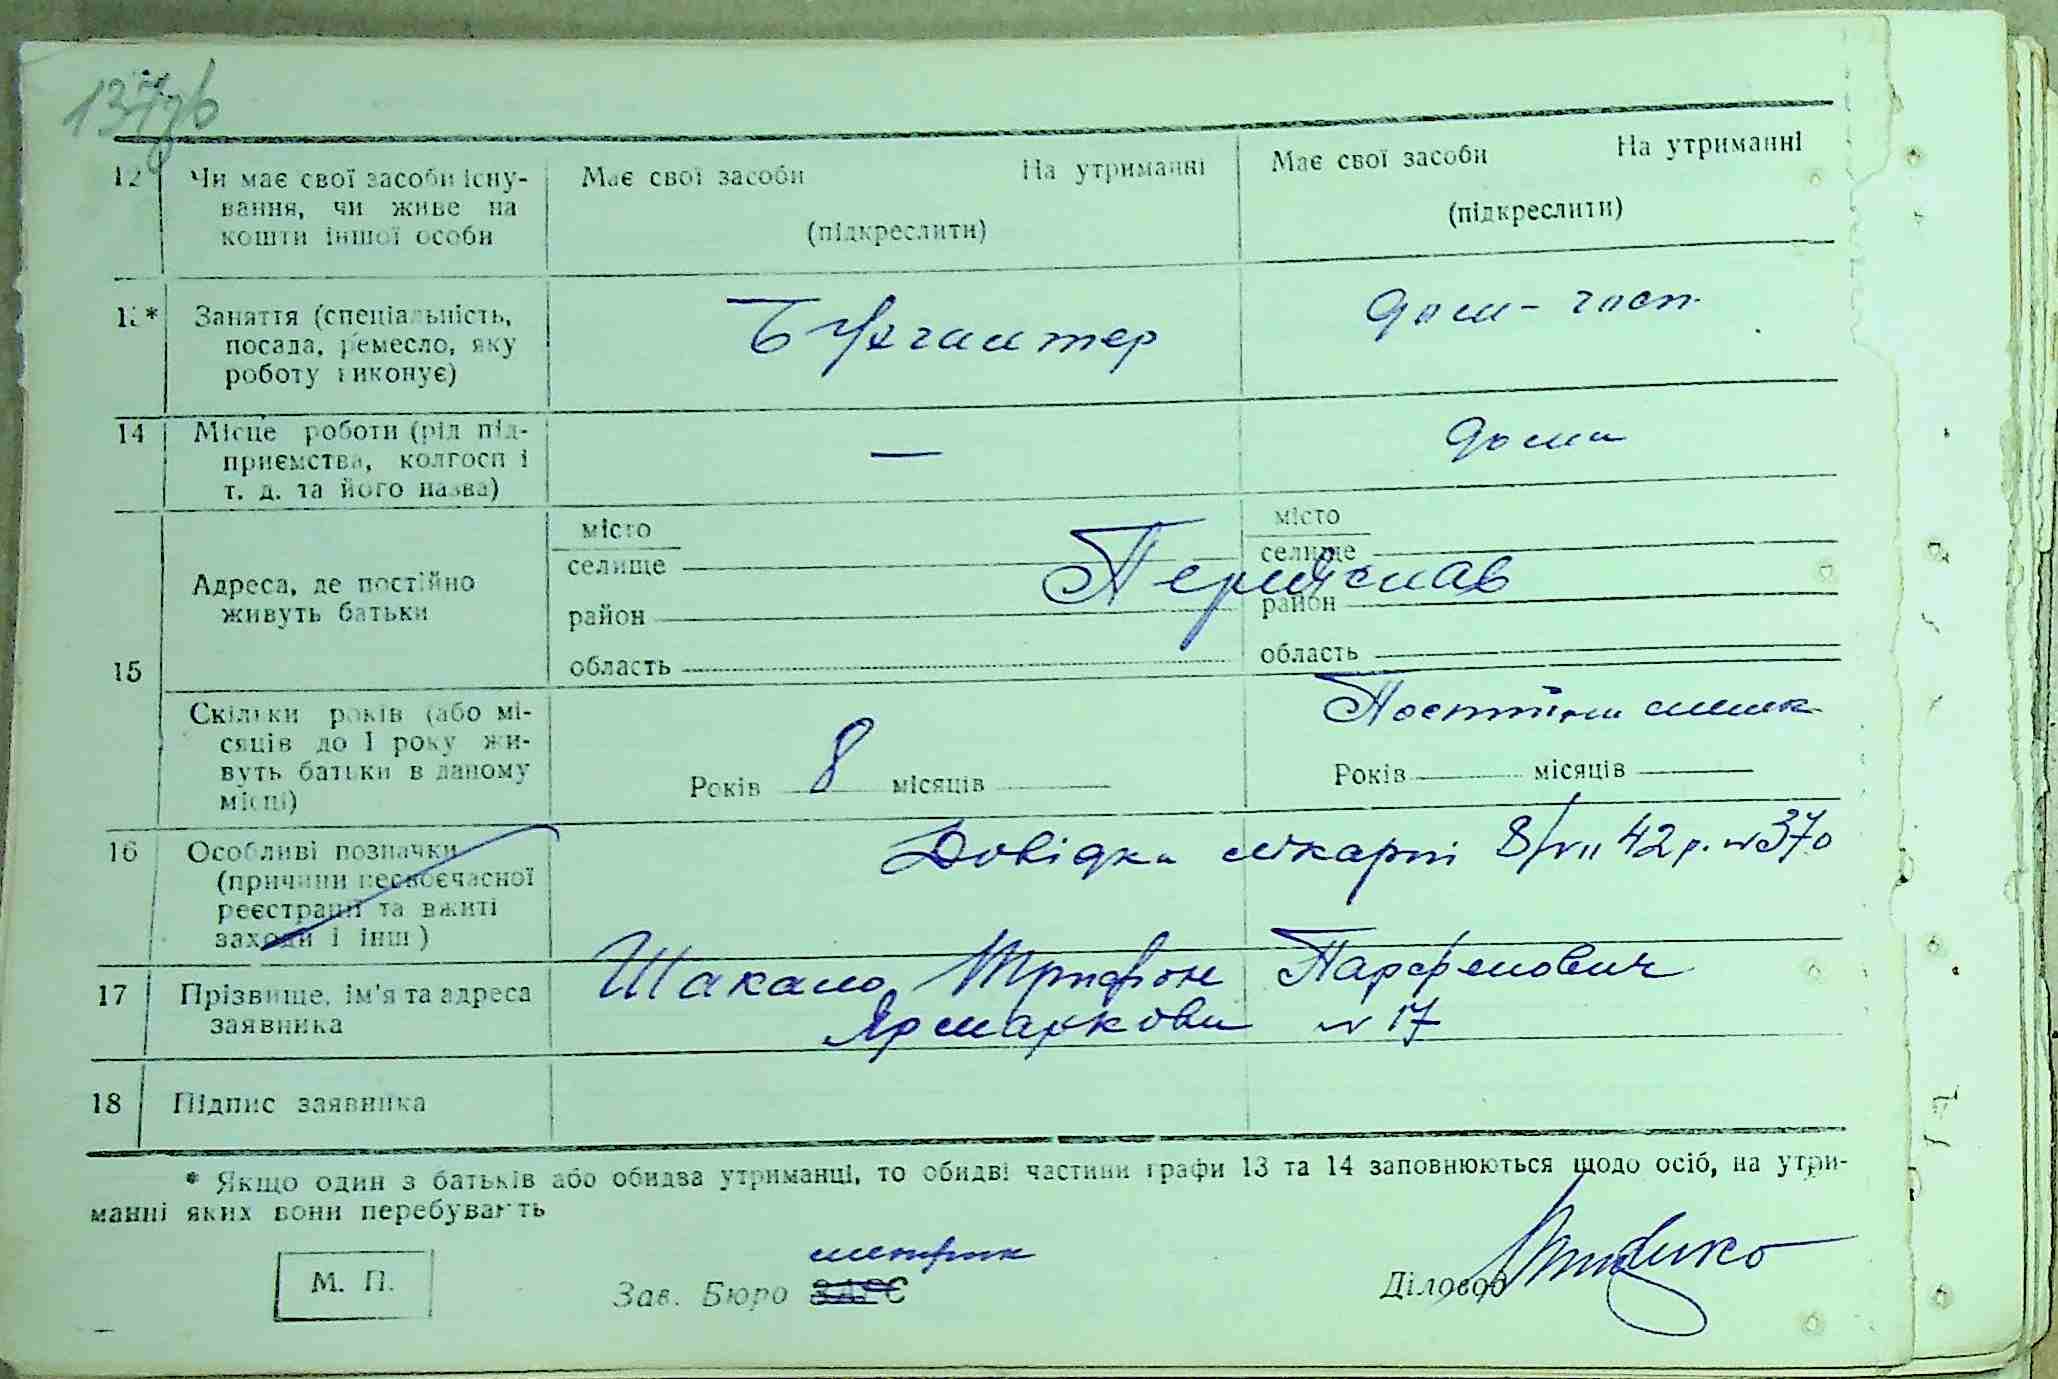 12 Чи має свої засоби існу-
вання, чи живе на
кошти іншої особи
Має свої засоби На утриманні
(підкреслити)
Має свої засоби На утриманні
(підкреслити)
13* Заняття (спеціальність,
посада, ремесло, яку
роботу виконує)
Бухгалтер
дом-госп.
14 Місце роботи (рід під-
приємства, колгосп і
т. д. та його назва)
—
дома
15
Адреса, де постійно
живуть батьки
місто
селище
район
область
місто
селище
район
область
Переяслав
Скільки років (або мі-
сяців до 1 року жи-
вуть батьки в даному
місці)
Років 8 місяців
Постійни
Років місяців
16 Особливі позначки
(причини несвоєчасної
реєстрації та вжиті
заходи і інш)
Довідка лікарні 8/VII 42 р. № 370
17 Прізвище, ім'я та адреса
заявника
Шакало Трифон Парфенович
Ярмаркова № 17
18 Підпис заявника
* Якщо один з батьків або обидва утриманці, то обидві частини графи 13 та 14 заповнюються щодо осіб, на утри-
манні яких вони перебувають
М. П.
метрик
Зав. Бюро ЗАГС
Діловод